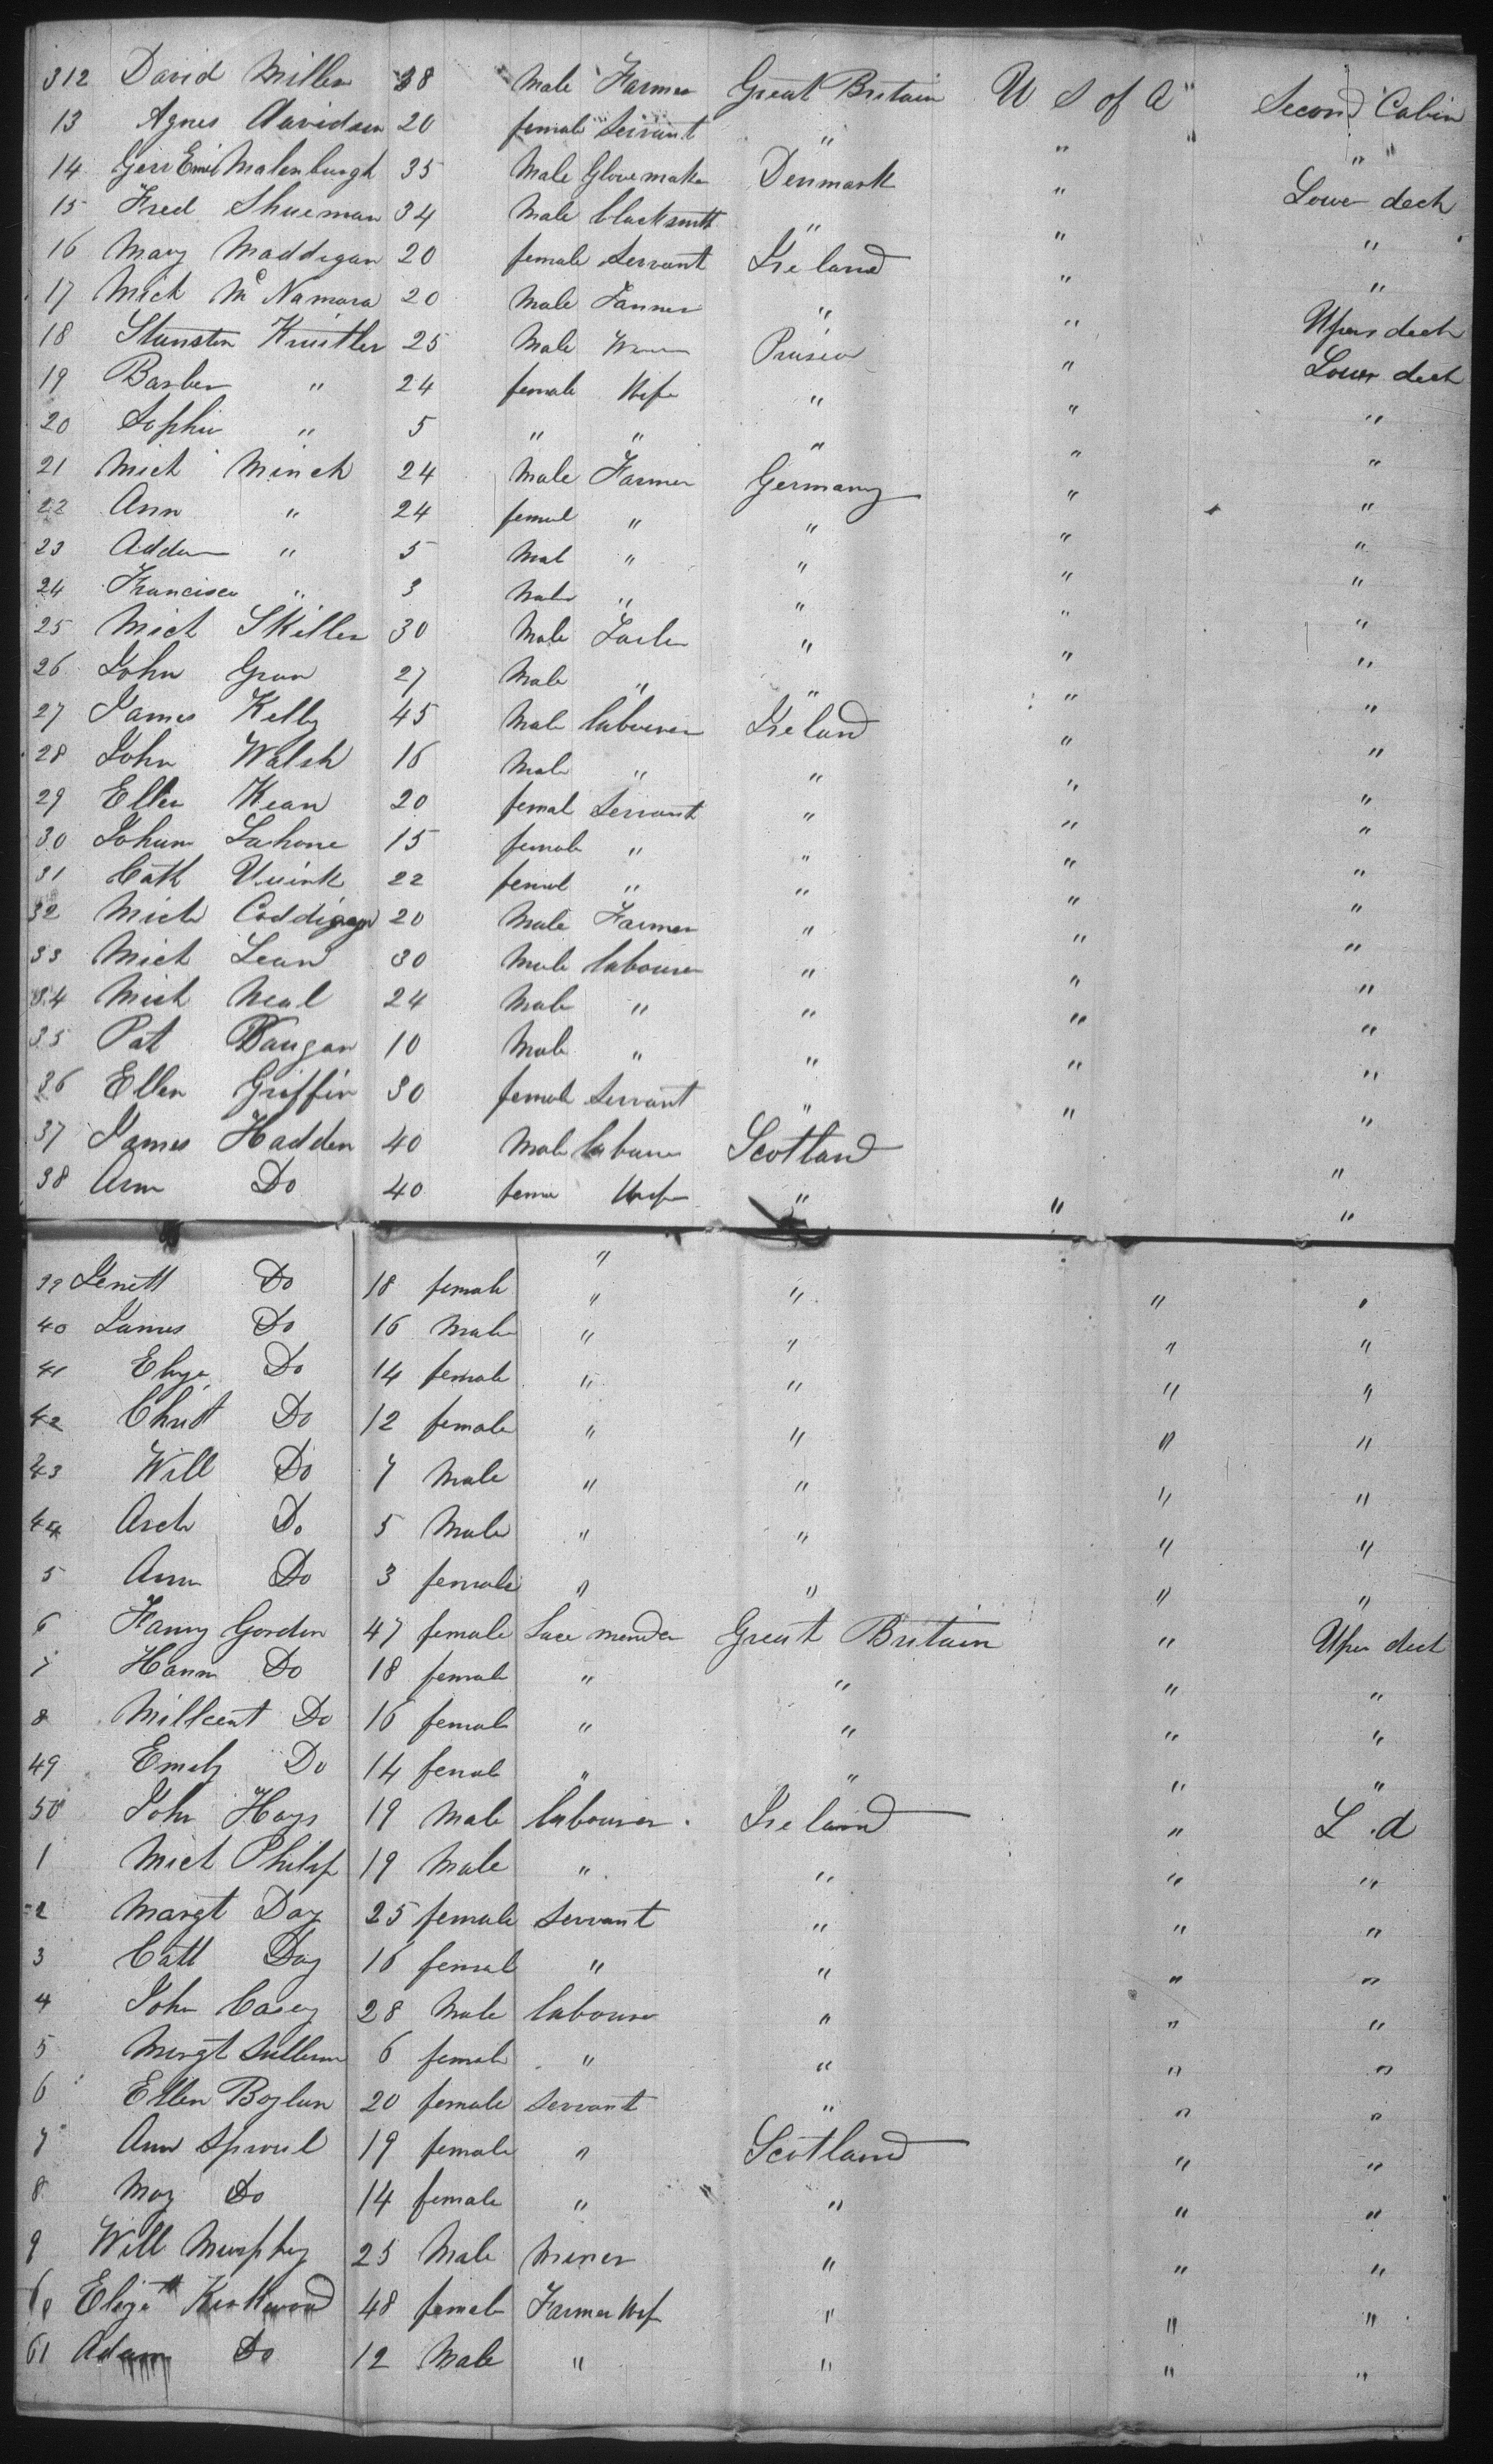 312 David Miller 38 Male Farmer Great Britain U S of A Second Cabin
13 Agnes Davidson 20 female Servant " " "
14 Emil Malenburgh 35 Male Glove maker Denmark " Lower deck
15 Fred Shueman 34 Male blacksmith " " "
16 Mary Maddigan 20 female Servant Ireland " "
17 Mich Mc Namara 20 Male Tanner " " Upper deck
18 25 Male Prusia " Lower deck
19 Barber " 24 female Wife " " "
20 Sophie " 5 " " " " "
21 Mich Minch 24 Male Farmer Germany " "
22 Ann " 24 femal " " " "
23 Addam " 5 Mal " " " "
24 Francisca " 3 Male " " " "
25 Mich Skiller 30 Male " " "
26 John Gran 27 Male " " " "
27 James Kelly 45 Male labourer Ireland " "
28 John Walsh 16 Male " " " "
29 Ellen Kean 20 femal Servant " " "
30 Johan Lahone 15 female " " " "
31 Cath 22 femal " " " "
32 Mich Coddigan 20 Male Farmer " " "
33 Mich Lean 30 Male labourer " " "
34 Mich Neal 24 Male " " " "
35 Pat 10 Male " " " "
36 Ellen Griffin 30 female Servant " " "
37 James Hadden 40 Male labourer Scotland "
38 Ann Do 40 fema Wife " " "
39 Jenett Do 18 female " " " "
40 James Do 16 Male " " " "
41 Eliza Do 14 female " " " "
42 Christ Do 12 female " " " "
43 Will Do 7 Male " " " "
44 Arch Do 5 Male " " " "
5 Ann Do 3 female " " " "
6 Fanny Gordon 47 female Lace mender Great Britain " Upper deck
7 Hann Do 18 female " " " "
8 Millcent Do 16 female " " " "
49 Emely Do 14 female " " " "
50 John Hays 19 Male labourer Ireland " L . d
1 Mich Philip 19 Male " " " "
2 Margt Day 25 female Servant " " "
3 Catt Day 16 femal " " " "
4 John Casey 28 Male labourer " " "
5 Margt Sullivan 6 female " " " "
6 Ellen Boylan 20 female Servant " " "
7 Ann Sproul 19 female " Scotland " "
8 May Do 14 female " " " "
9 Will Murphey 25 Male Miner " " "
60 Eliza Kirkwood 48 female Farmer Wif " " "
61 Adam Do 12 Male " " " "